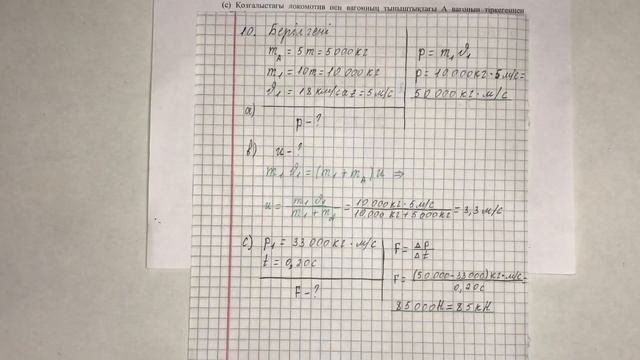 (с) Қозғалыстағы локомотив пен вагонның тыныштықтағы А вагонын тіркегеннен
10. Берілгені
m_A = 5т = 5000кг
m₁ = 10т = 10 000 кг
ϑ₁ = 18 км/сағ = 5 м/с
p = m₁ ϑ₁
p = 10 000 кг · 5 м/с =
50 000 кг · м/с
а)
p - ?
b) u - ?
m₁ ϑ₁ = (m₁ + m_A) u ⇒
u = m₁ ϑ₁ / (m₁ + m_A) = 10 000 кг · 5 м/с / (10 000 кг + 5000 кг) = 3,3 м/с
c) p₁ = 33 000 кг · м/с
t = 0,20с
F - ?
F = Δp / Δt
F = (50 000 - 33 000) кг · м/с / 0,20с =
85 000Н = 85 кН